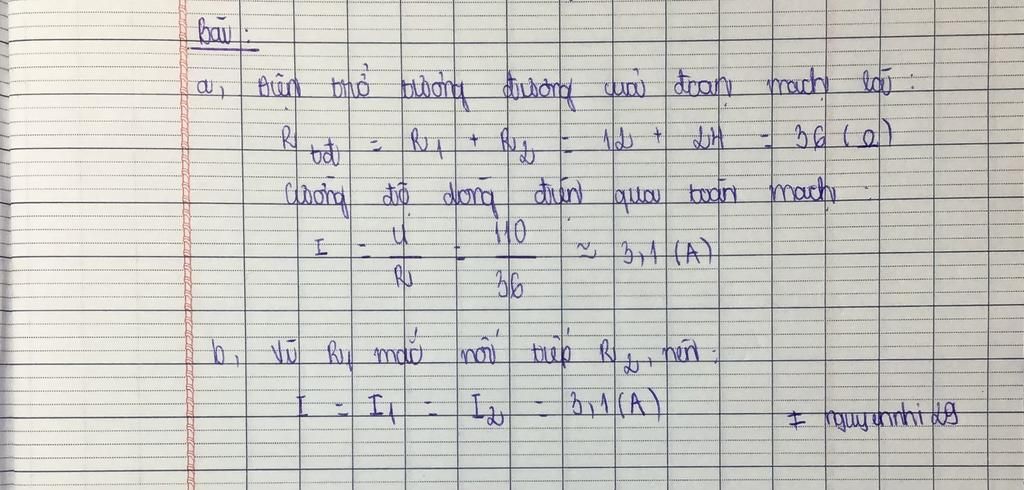 Bài:
a, Điện trở tương đương của đoạn mạch là:
R tđ = R1 + R2 = 12 + 24 = 36 (Ω)
Cường độ dòng điện qua toàn mạch
I = U/R = 110/36 ≈ 3,1 (A)
b, Vì R1 mắc nối tiếp R2, nên:
I = I1 = I2 = 3,1 (A)
# nguyennhi29